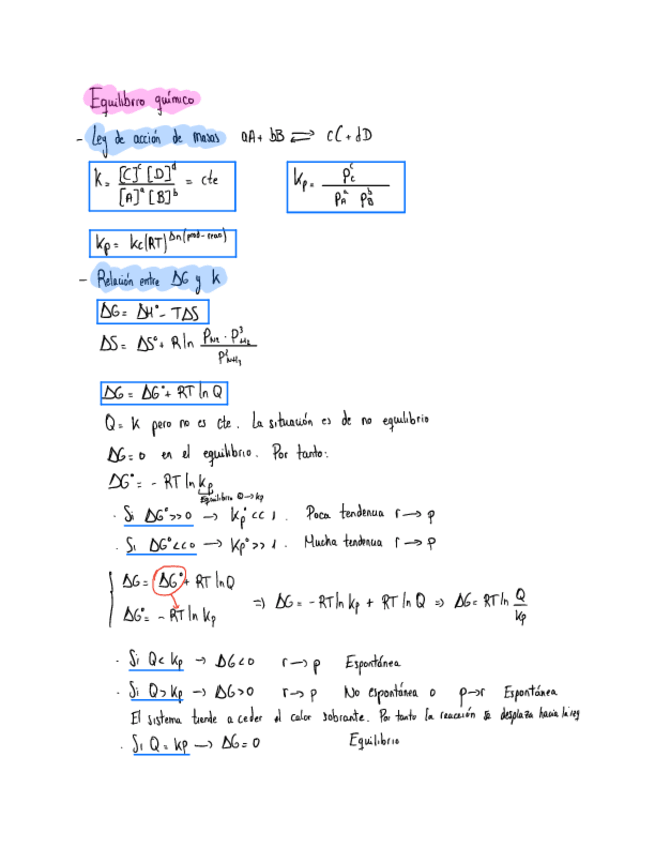 Equilibrio químico
- Ley de acción de masas aA + bB ⇌ cC + dD
K = [C]^c [D]^d / [A]^a [B]^b = cte
Kp = P_C^c / P_A^a P_B^b
Kp = Kc(RT)^Δn(prod-reac)
- Relación entre ΔG y K
ΔG = ΔH° - TΔS
ΔS = ΔS° + R ln P_N2 · P_H2^3 / P_NH3^2
ΔG = ΔG° + RT ln Q
Q = K pero no es cte. La situación es de no equilibrio
ΔG = 0 en el equilibrio. Por tanto:
ΔG° = - RT ln Kp
Equilibrio Q → Kp
· Si ΔG° >> 0 → Kp° << 1. Poca tendencia r → p
· Si ΔG° << 0 → Kp° >> 1. Mucha tendencia r → p
ΔG = ΔG° + RT ln Q
ΔG° = - RT ln Kp
=> ΔG = - RT ln Kp + RT ln Q => ΔG = RT ln Q / Kp
· Si Q < Kp → ΔG < 0 r → p Espontánea
· Si Q > Kp → ΔG > 0 r → p No espontánea o p → r Espontánea
El sistema tiende a ceder el calor sobrante. Por tanto la reacción se desplaza hacia la izq
· Si Q = Kp → ΔG = 0 Equilibrio